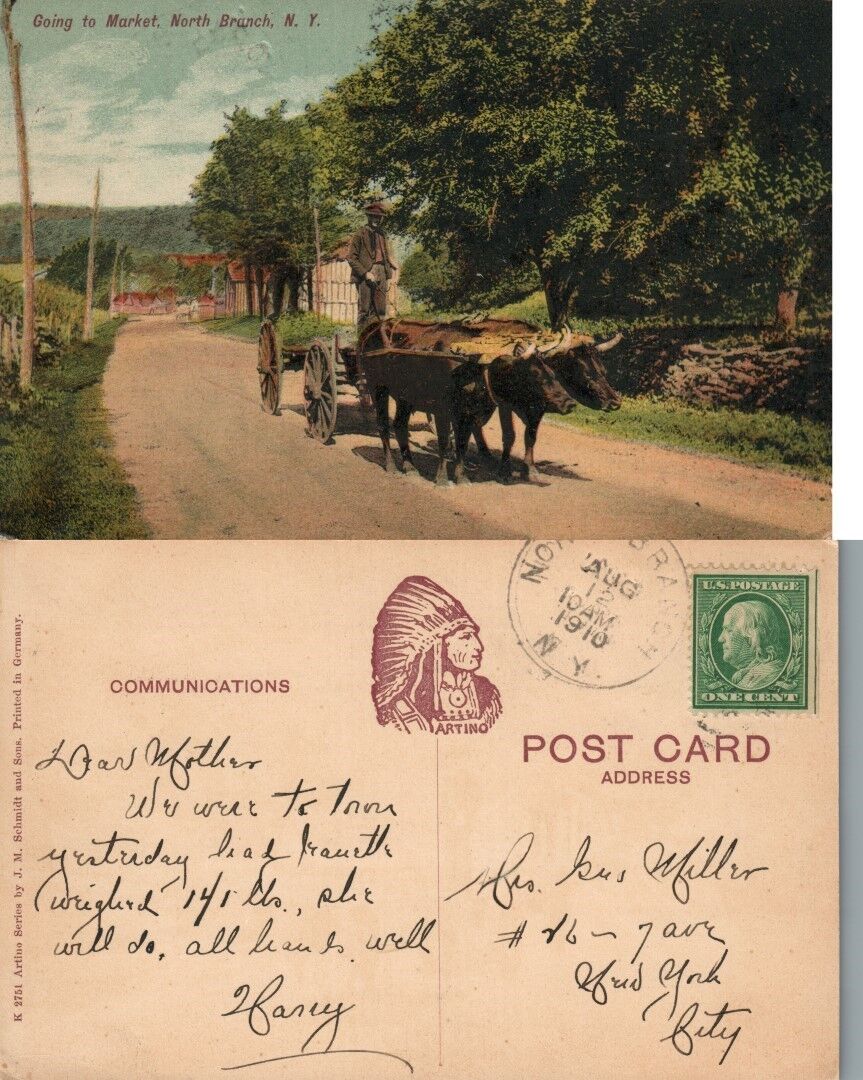 Going to Market, North Branch, N. Y.
K 2751 Artino Series by J. M. Schmidt and Sons. Printed in Germany.
COMMUNICATIONS
ARTINO
NORTH BRANCH
AUG
12
10AM
1910
N. Y.
U.S. POSTAGE
ONE CENT
POST CARD
ADDRESS
Dear Mother
We were to Town
yesterday had Jeanette
weighed 14 lbs., she
will do, all hands well
Harry
Mrs. Gus Miller
# 26 - 7 ave
New York
City